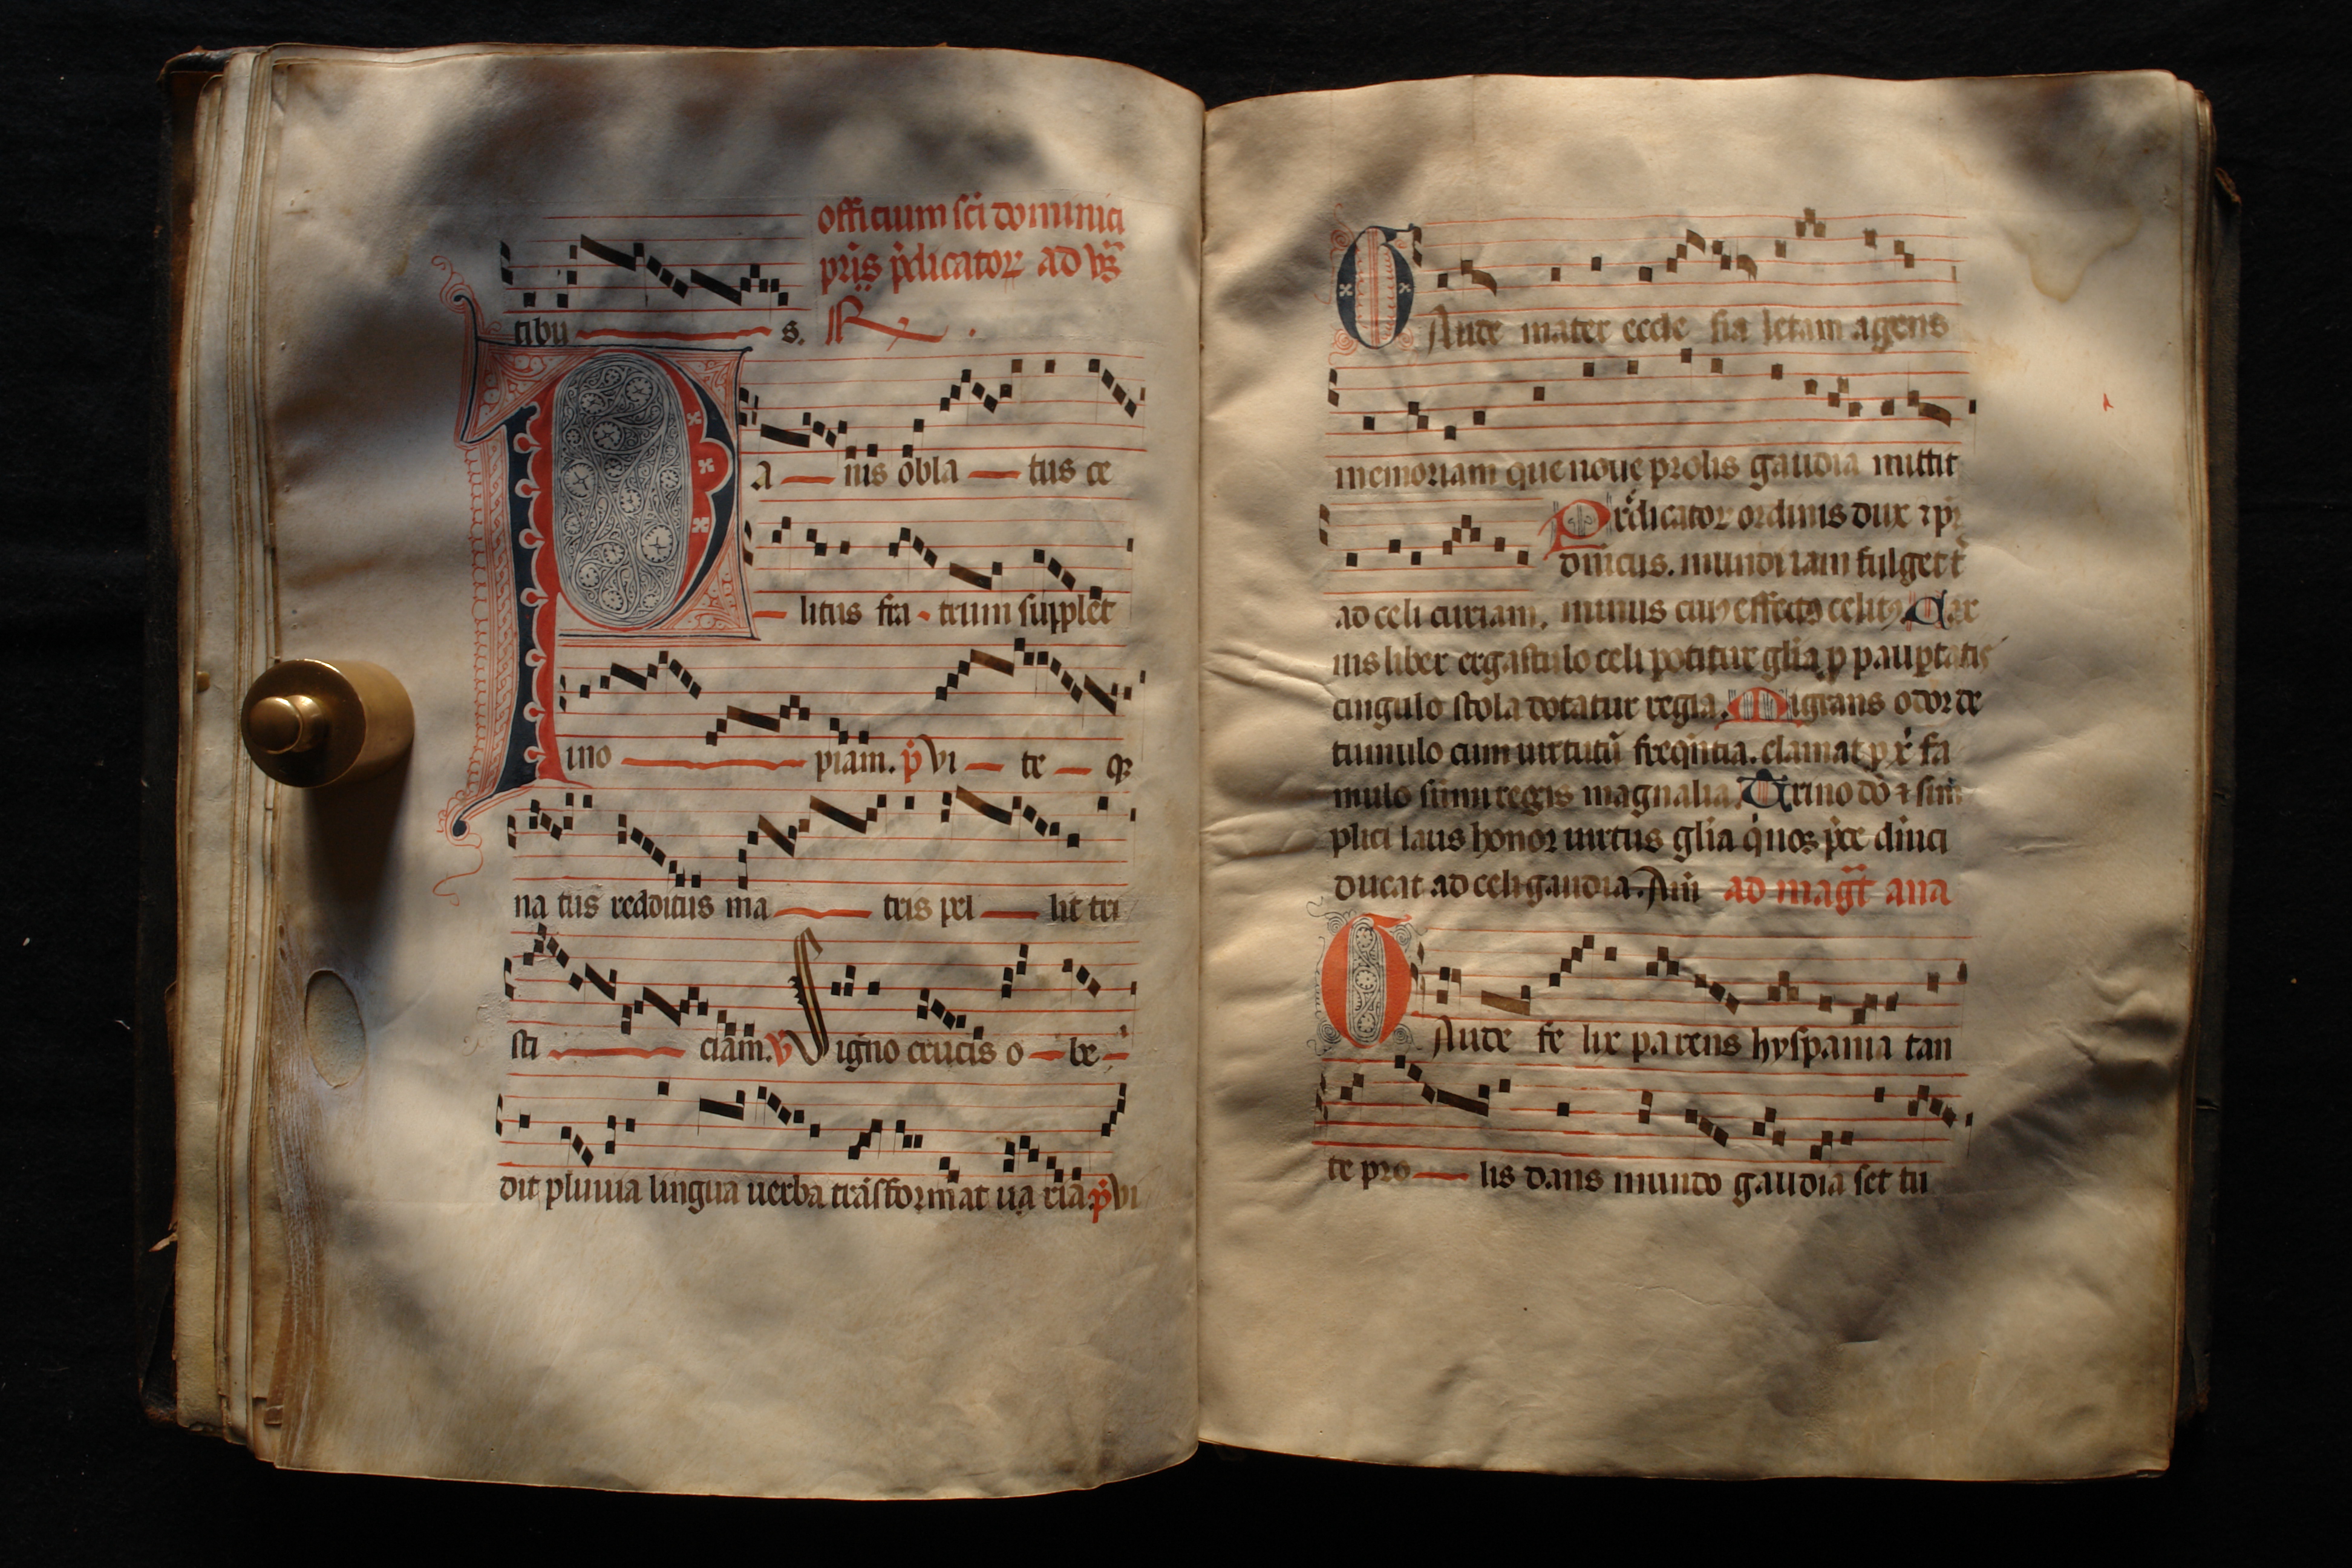 officium sc̄i dominici
pr̄is p̄dicator ad vs̄
tibu s. R
PA nis obla tus ce
litus fra trum supplet
ino piam. p̄ vi te q;
na tus redditus ma tris pel lit tri
sti ciam. V Signo crucis o be
dit pluuia lingua uerba trāsformat ua ria. p̄ vi
GAude mater eccle sia letam agens
memoriam que noue prolis gaudia mittit
Predicator ordinis dux ⁊ pr̄
dn̄icus. mundi iam fulget t̄
ad celi curiam. minus ciuꝰ effectꝰ celitꝰ. Car
nis liber ergastulo celi potitur gl̄ia p paup̄tatis
cingulo stola dotatur regia. Migrans odor de
tumulo cum uirtutū freqn̄tia. clamat p x̄ fa
mulo sum̄i regis magnalia. Trino dō ⁊ sim
plici laus honor uirtus gl̄ia q̄ nos p̄ce dn̄ici
ducat ad celi gaudia. Am̄ ad maḡt ana
GAude fe lix parens hyspania tan
te pro lis dans mundo gaudia set tu